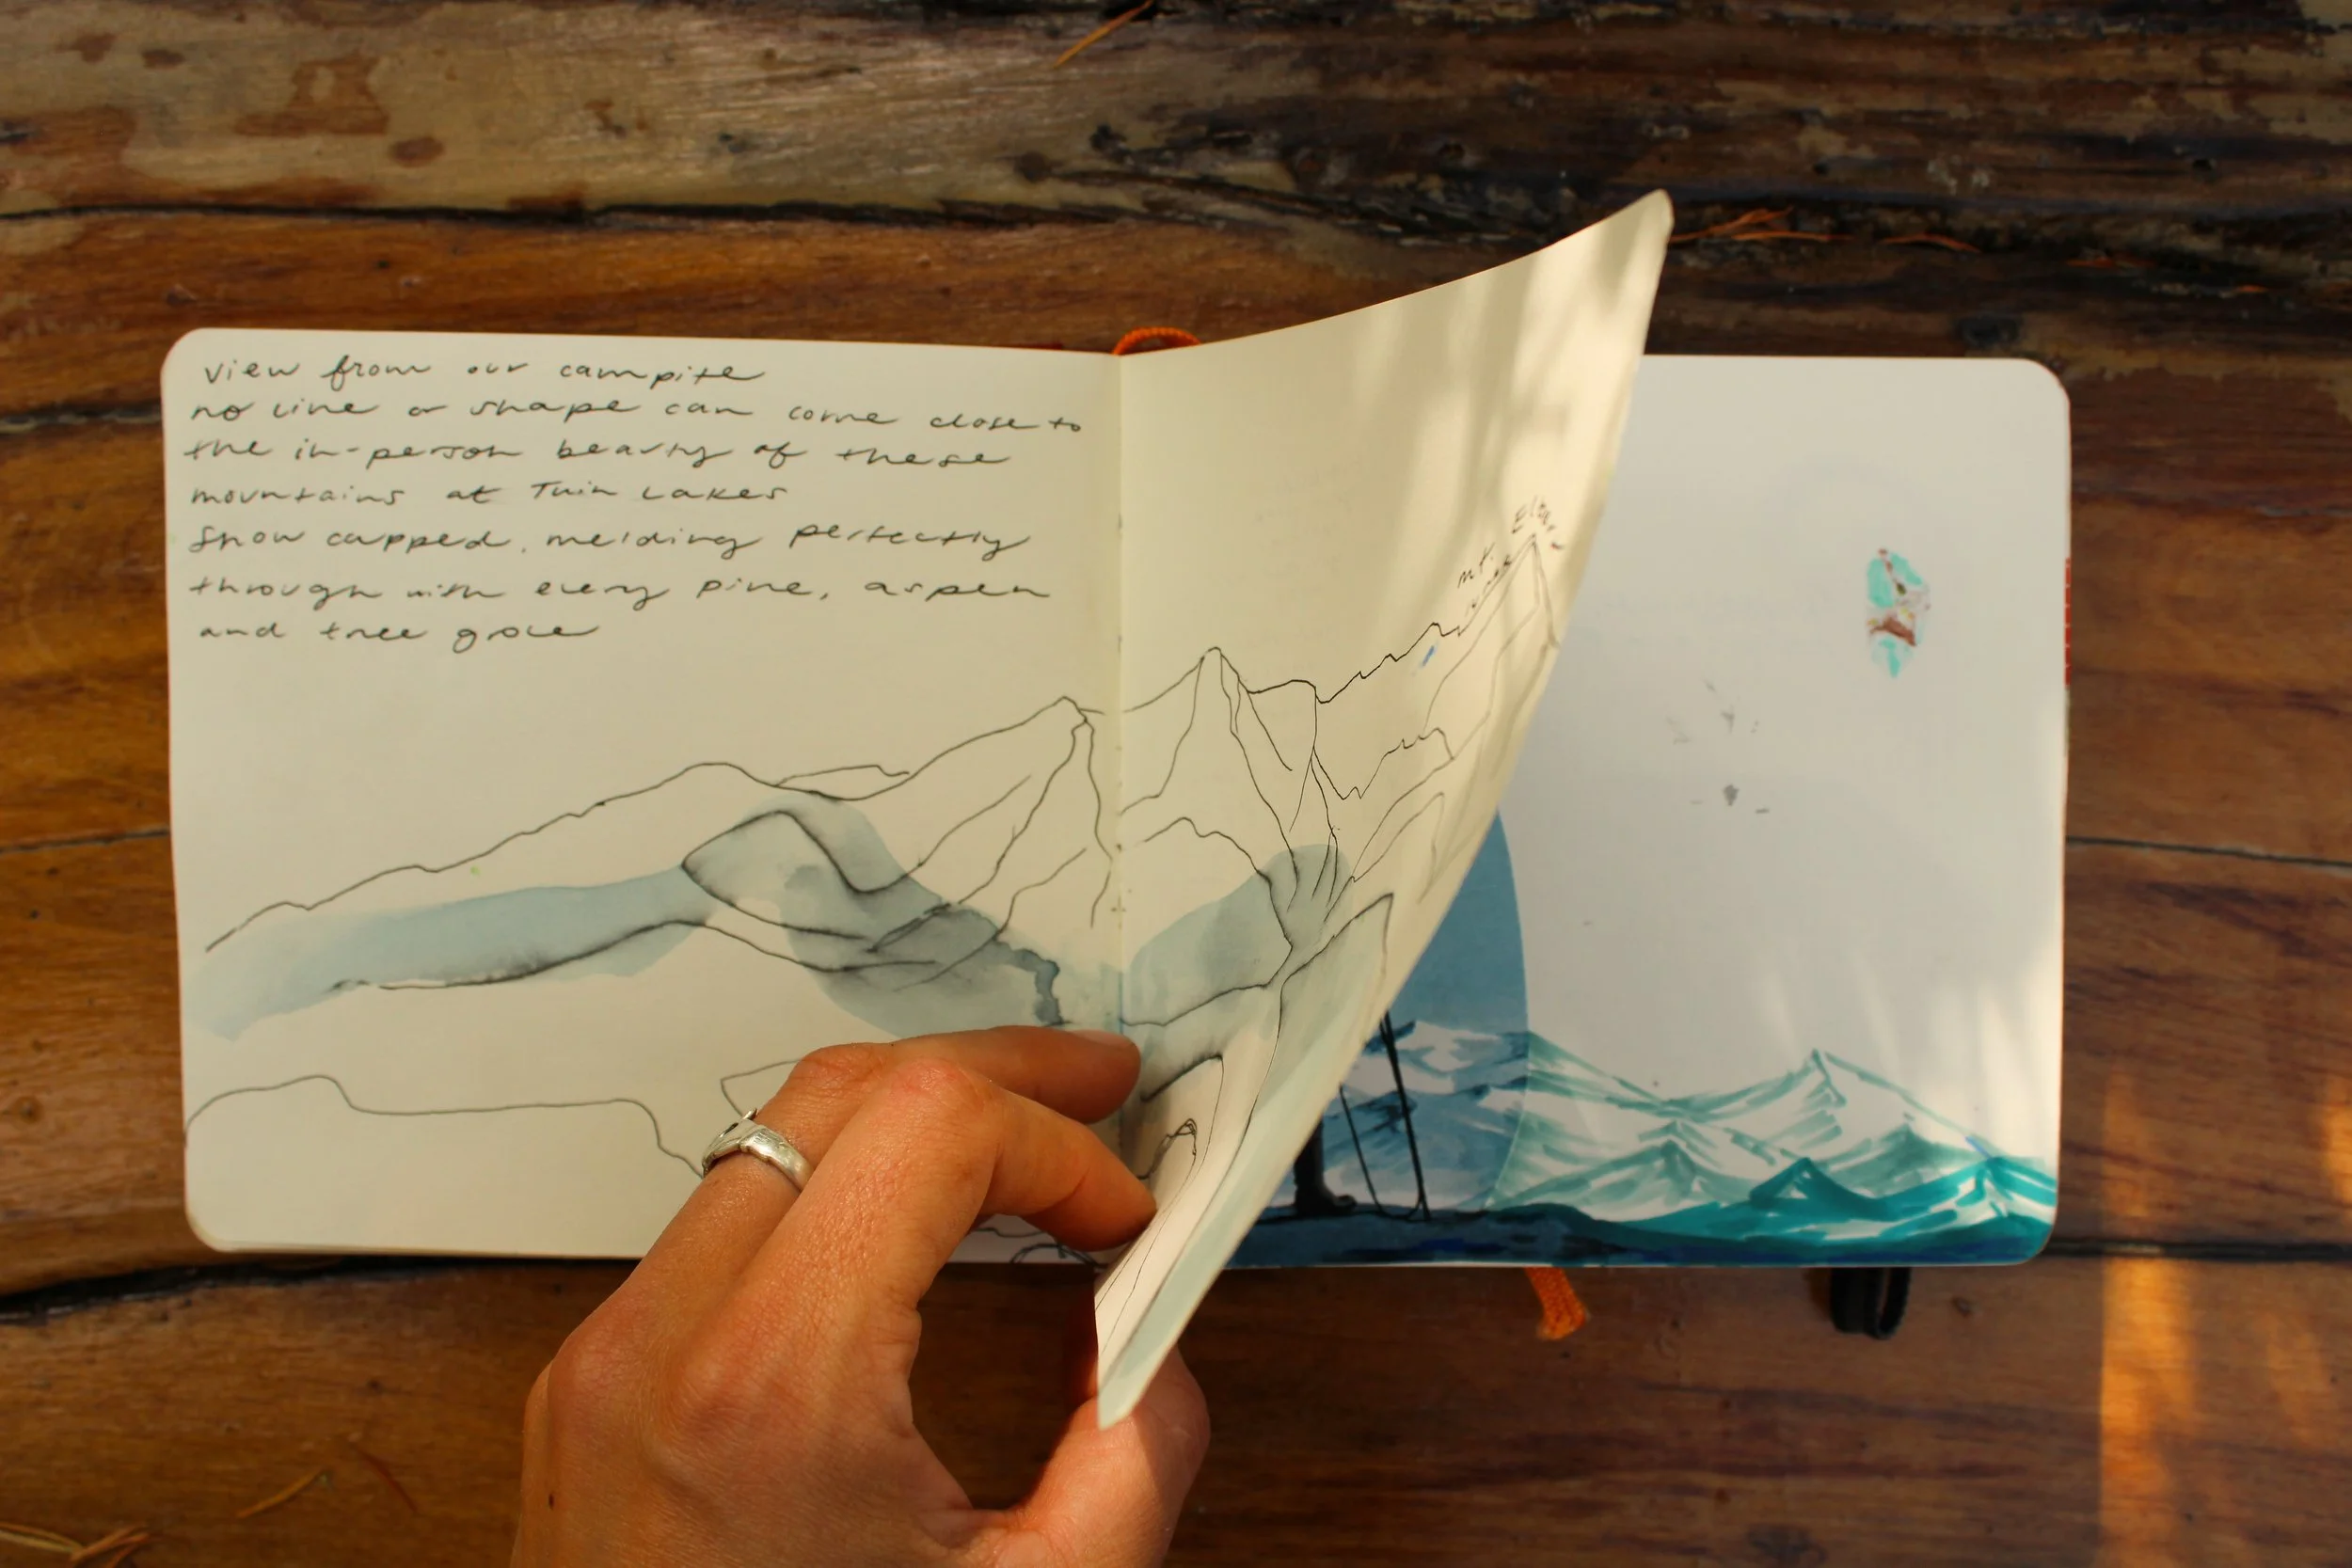 view from our campsite
no line or shape can come close to
the in-person beauty of these
mountains at Twin Lakes
Snow capped, melding perfectly
through with every pine, aspen
and tree grove
mt.